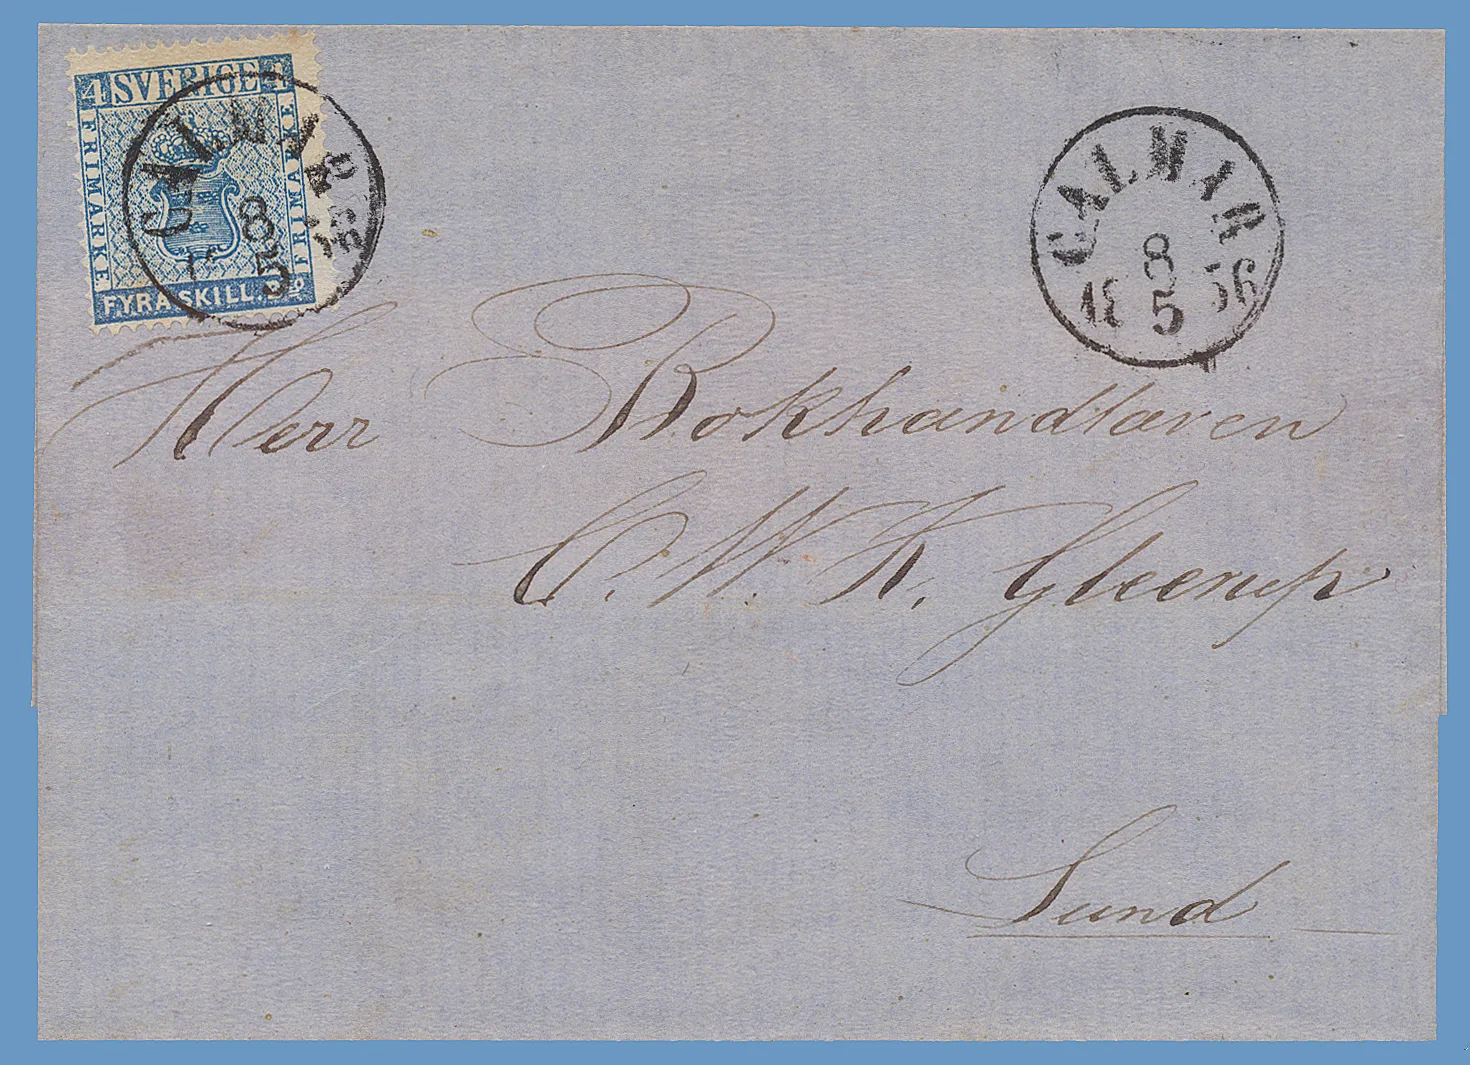 4 SVERIGE 4
FRIMARKE
FRIMARKE
FYRA SKILL. B<sup>co</sup>
CALMAR
8
5
1856
CALMAR
8
1856
5
Herr Bokhandlaren
C. W. K. Gleerup
Lund